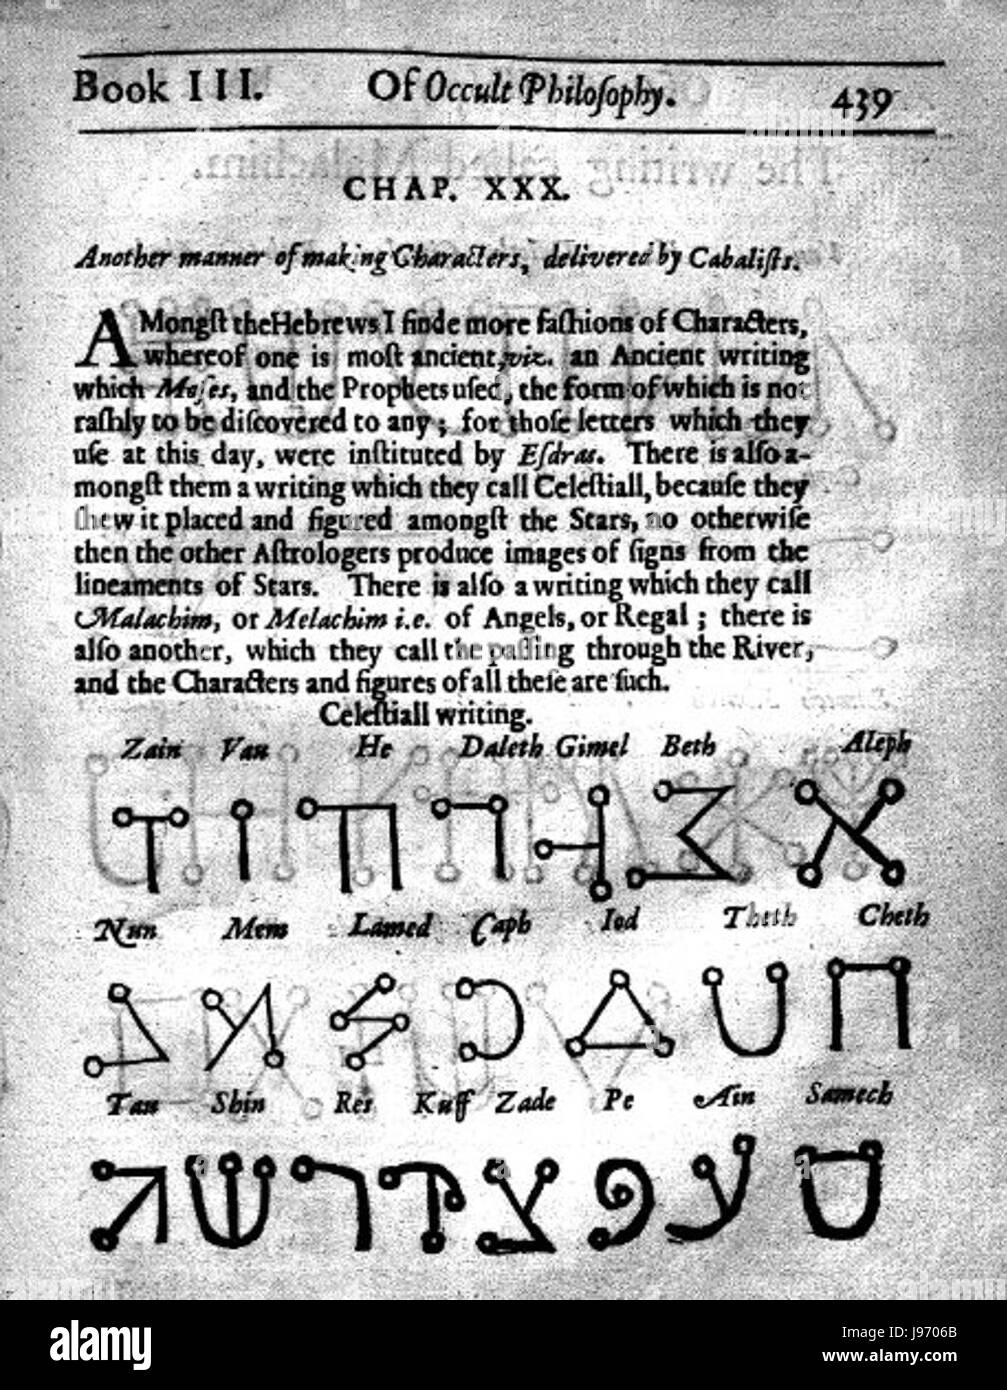 Book III. Of Occult Philoſophy. 439
CHAP. XXX.
Another manner of making Characters, delivered by Cabaliſts.
AMongſt the Hebrews I finde more faſhions of Characters,
whereof one is moſt ancient, viz. an Ancient writing
which Moſes, and the Prophets uſed, the form of which is not
raſhly to be diſcovered to any; for thoſe letters which they
uſe at this day, were inſtituted by Eſdras. There is alſo a-
mongſt them a writing which they call Celeſtiall, becauſe they
ſhew it placed and figured amongſt the Stars, no otherwiſe
then the other Aſtrologers produce images of ſigns from the
lineaments of Stars. There is alſo a writing which they call
Malachim, or Melachim i.e. of Angels, or Regal; there is
alſo another, which they call the paſſing through the River,
and the Characters and figures of all theſe are ſuch.
Celeſtiall writing.
Zain Vau He Daleth Gimel Beth Aleph
Nun Mem Lamed Caph Iod Theth Cheth
Tau Shin Res Kuff Zade Pe Ain Samech
alamy
Image ID: J9706B
www.alamy.com